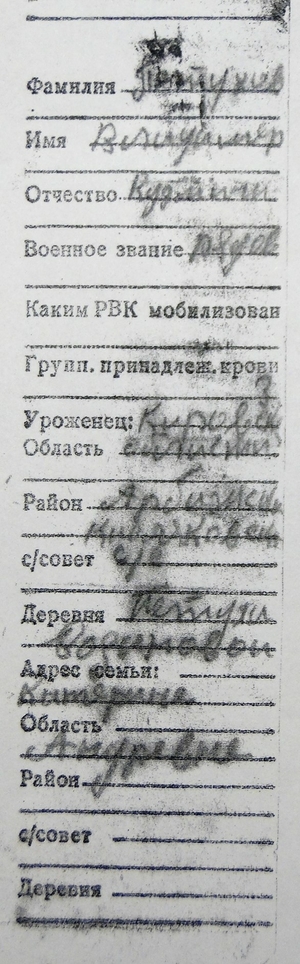 Фамилия Петухов
Имя Владимир
Отчество Кузмич
Военное звание рядов
Каким РВК мобилизован
Групп. принадлеж. крови
Уроженец: Кировск
Область
Район Арбажск
с/совет с/с
Деревня Петухи
Адрес семьи:
Катерине
Область
Андревне
Район
с/совет
Деревня